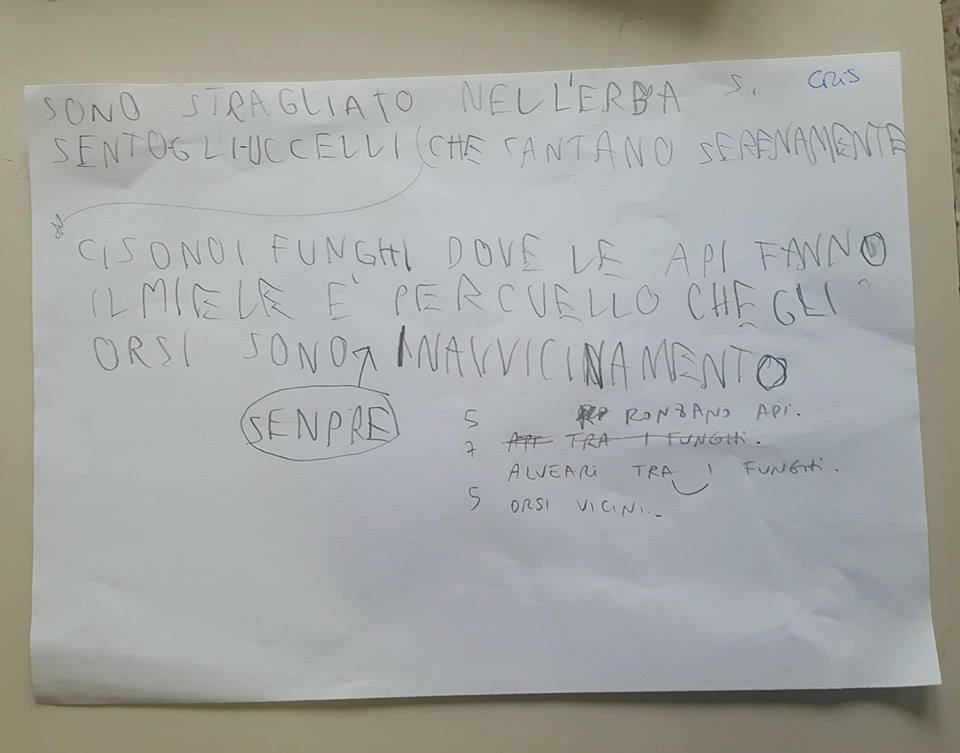 SONO STRAGLIATO NELL'ERBA S. CRIS
SENTO GLI UCCELLI (CHE CANTANO SERENAMENTE
CI SONO I FUNGHI DOVE LE API FANNO
IL MIELE E' PER CUELLO CHE GLI
ORSI SONO IN AVVICINAMENTO
SENPRE
5 RONZANO API.
7 API TRA I FUNGHI.
ALVEARI TRA I FUNGHI.
5 ORSI VICINI...